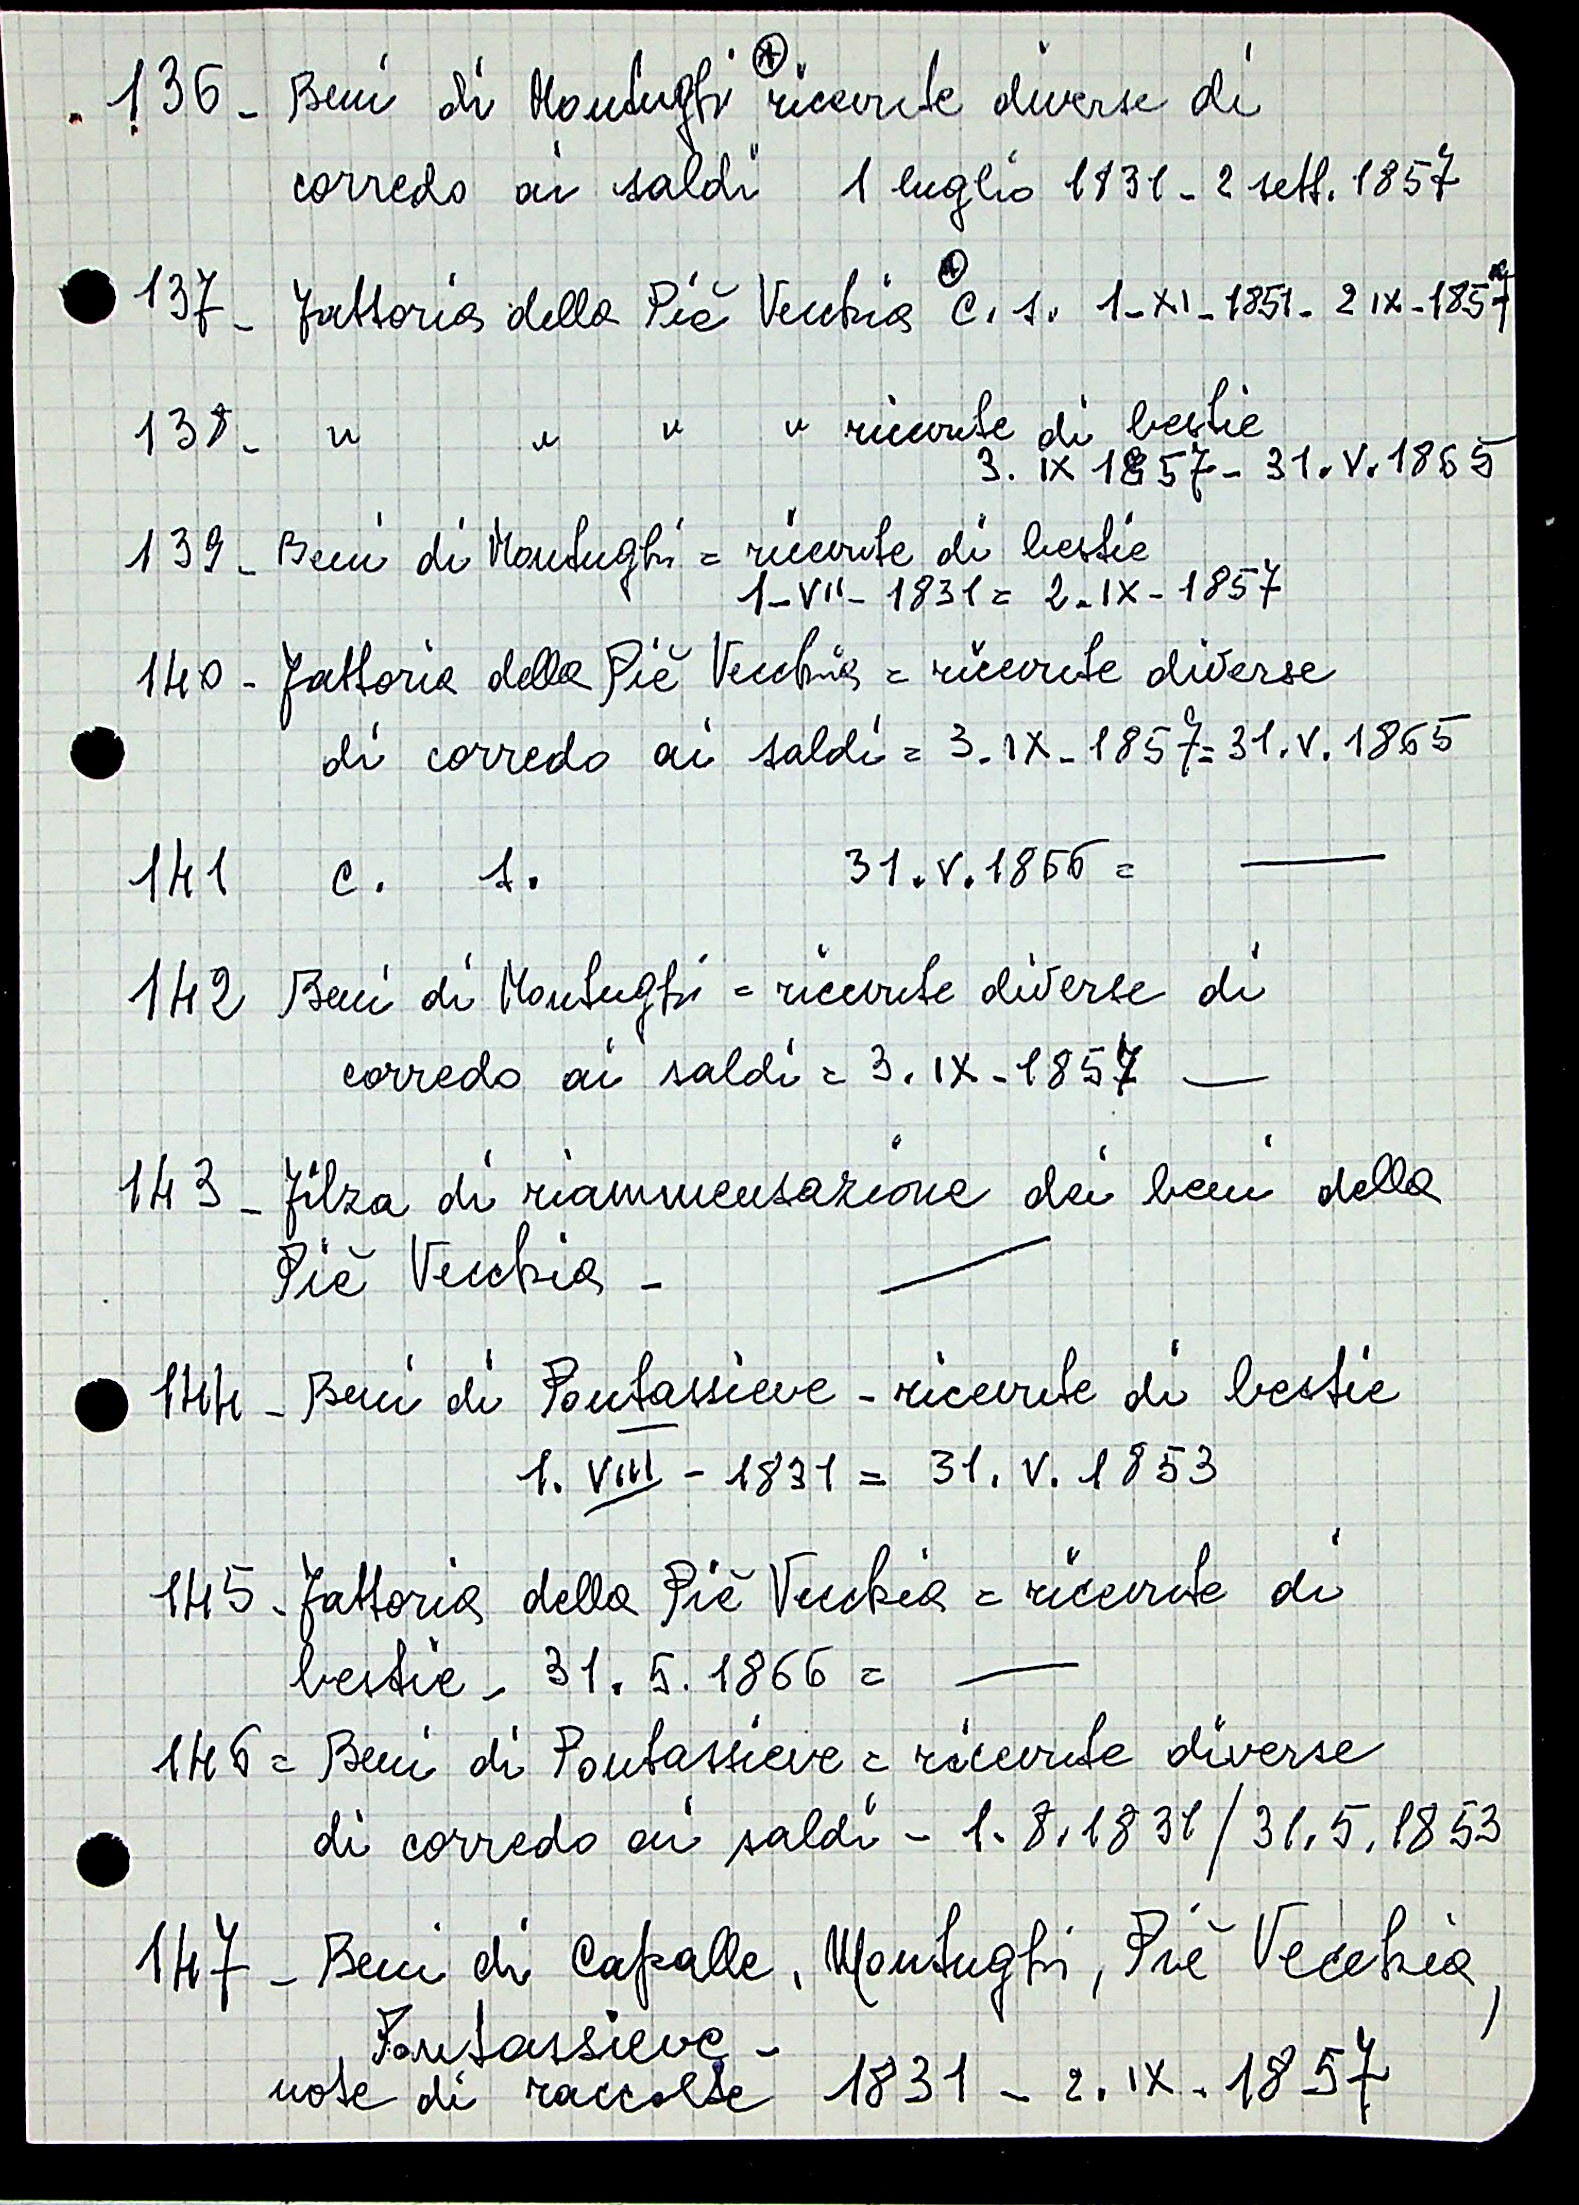 136 - Beni di Montughi (A) ricevute diverse di
corredo ai saldi 1 luglio 1831 - 2 sett. 1857
137 - Fattoria della Piè Vecchia (A) c. s. 1-XI-1851 - 2 IX-1857
138 - " " " " ricevute di bestie
3. IX 1857 - 31. V. 1865
139 - Beni di Montughi = ricevute di bestie
1-VII-1831 = 2-IX-1857
140 - Fattoria della Piè Vecchia = ricevute diverse
di corredo ai saldi = 3. IX-1857 = 31. V. 1865
141 c. s. 31. V. 1866 = —
142 Beni di Montughi = ricevute diverse di
corredo ai saldi = 3. IX-1857 —
143 - Filza di riammensazione dei beni della
Piè Vecchia - —
144 - Beni di Pontassieve - ricevute di bestie
1. VIII - 1831 = 31. V. 1853
145 - Fattoria della Piè Vecchia = ricevute di
bestie - 31. 5. 1866 = —
146 = Beni di Pontassieve = ricevute diverse
di corredo ai saldi - 1. 8. 1831 / 31. 5. 1853
147 - Beni di Capalle, Montughi, Piè Vecchia,
Pontassieve -
note di raccolte 1831 - 2. IX. 1857